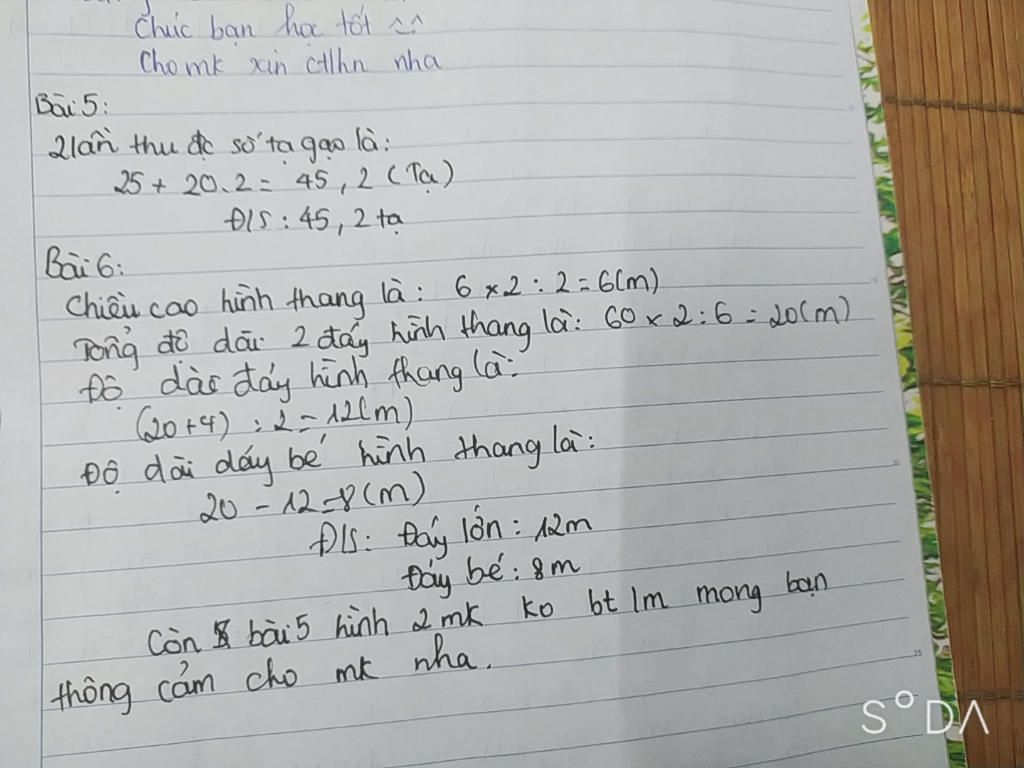 Chúc bạn học tốt ^^
Cho mk xin ctlhn nha
Bài 5:
2 lần thu đc số tạ gạo là:
25 + 20.2 = 45,2 (Tạ)
Đ/S: 45,2 tạ
Bài 6:
Chiều cao hình thang là: 6 x 2 : 2 = 6(m)
Tổng độ dài 2 đáy hình thang là: 60 x 2 : 6 = 20(m)
Độ dài đáy hình thang là:
(20+4) : 2 = 12(m)
Độ dài đáy bé hình thang là:
20 - 12 = 8(m)
Đ/S: Đáy lớn: 12m
Đáy bé: 8m
Còn bài 5 hình 2 mk ko bt lm mong bạn
thông cảm cho mk nha.
SODA